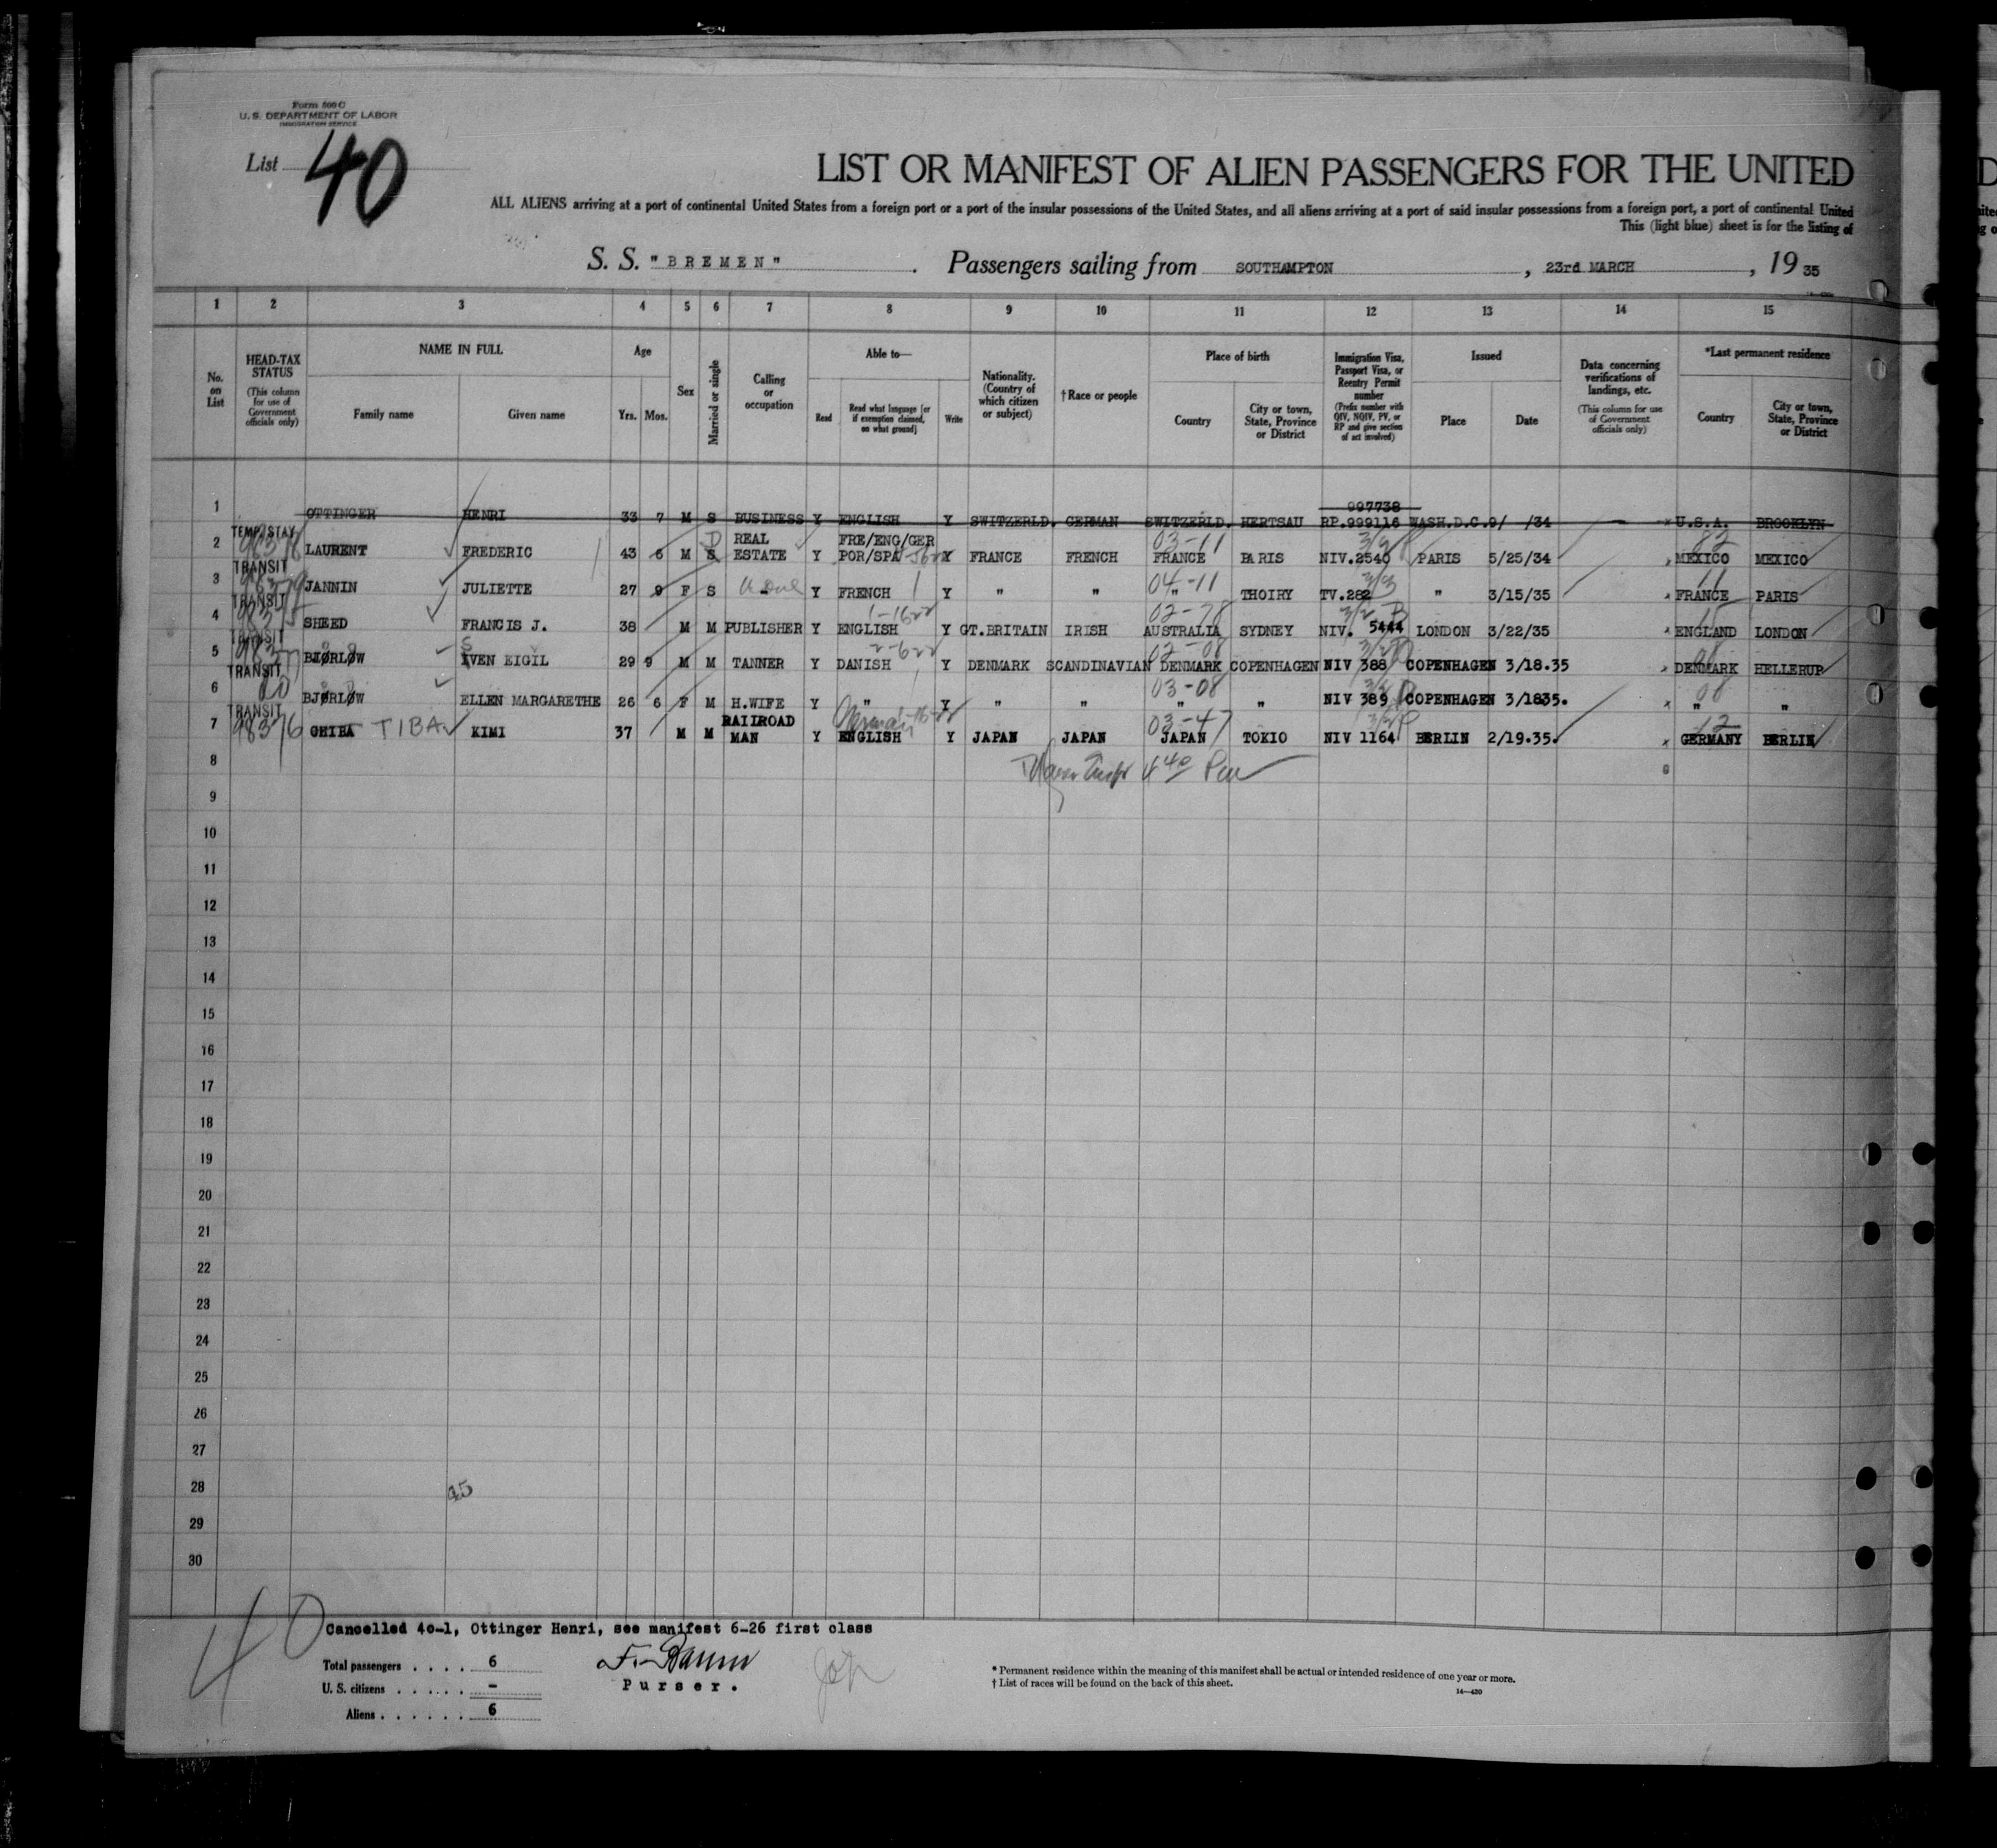 Form 500 C
U. S. DEPARTMENT OF LABOR
IMMIGRATION SERVICE
List 40
LIST OR MANIFEST OF ALIEN PASSENGERS FOR THE UNITED
ALL ALIENS arriving at a port of continental United States from a foreign port or a port of the insular possessions of the United States, and all aliens arriving at a port of said insular possessions from a foreign port, a port of continental United
This (light blue) sheet is for the listing of
S. S. "BREMEN" . Passengers sailing from SOUTHAMPTON , 23rd MARCH , 19 35
1 2 3 4 5 6 7 8 9 10 11 12 13 14 15
No. on List
HEAD-TAX STATUS (This column for use of Government officials only)
NAME IN FULL
Family name Given name
Age
Yrs. Mos.
Sex
Married or single
Calling or occupation
Able to—
Read Read what language [or if exemption claimed, on what ground] Write
Nationality. (Country of which citizen or subject)
†Race or people
Place of birth
Country City or town, State, Province or District
Immigration Visa, Passport Visa, or Reentry Permit number (Prefix number with QIV, NQIV, PV, or RP and give section of act involved)
Issued
Place Date
Data concerning verifications of landings, etc. (This column for use of Government officials only)
*Last permanent residence
Country City or town, State, Province or District
997738
1 OTTINGER HENRI 33 7 M S BUSINESS Y ENGLISH Y SWITZERLD. GERMAN SWITZERLD. HERTSAU RP.999116 WASH.D.C. 9/ /34 — U.S.A. BROOKLYN
TEMP. STAY D REAL FRE/ENG/GER 03-11 82
2 LAURENT FREDERIC 43 6 M S ESTATE Y POR/SPA Y FRANCE FRENCH FRANCE PARIS NIV.2540 PARIS 5/25/34 MEXICO MEXICO
TRANSIT 04-11 11
3 JANNIN JULIETTE 27 9 F S Y FRENCH Y " " " THOIRY TV.282 " 3/15/35 FRANCE PARIS
TRANSIT 02-78 15
4 SHEED FRANCIS J. 38 M M PUBLISHER Y ENGLISH Y GT.BRITAIN IRISH AUSTRALIA SYDNEY NIV. 5444 LONDON 3/22/35 ENGLAND LONDON
TRANSIT S 02-08 08
5 BJØRLØW IVEN EIGIL 29 9 M M TANNER Y DANISH Y DENMARK SCANDINAVIAN DENMARK COPENHAGEN NIV 388 COPENHAGEN 3/18.35 DENMARK HELLERUP
TRANSIT 03-08 08
6 BJØRLØW ELLEN MARGARETHE 26 6 F M H.WIFE Y " Y " " " " NIV 389 COPENHAGEN 3/1835. " "
TRANSIT RAIIROAD German 03-47 12
7 98376 CHIBA TIBA KIMI 37 M M MAN Y ENGLISH Y JAPAN JAPAN JAPAN TOKIO NIV 1164 BERLIN 2/19.35. GERMANY BERLIN
8
9
10
11
12
13
14
15
16
17
18
19
20
21
22
23
24
25
26
27
28
29
30
40
Cancelled 40-1, Ottinger Henri, see manifest 6-26 first class
Total passengers . . . . 6
U. S. citizens . . . . . . –
Aliens . . . . . . 6
Purser.
* Permanent residence within the meaning of this manifest shall be actual or intended residence of one year or more.
† List of races will be found on the back of this sheet.
14—430